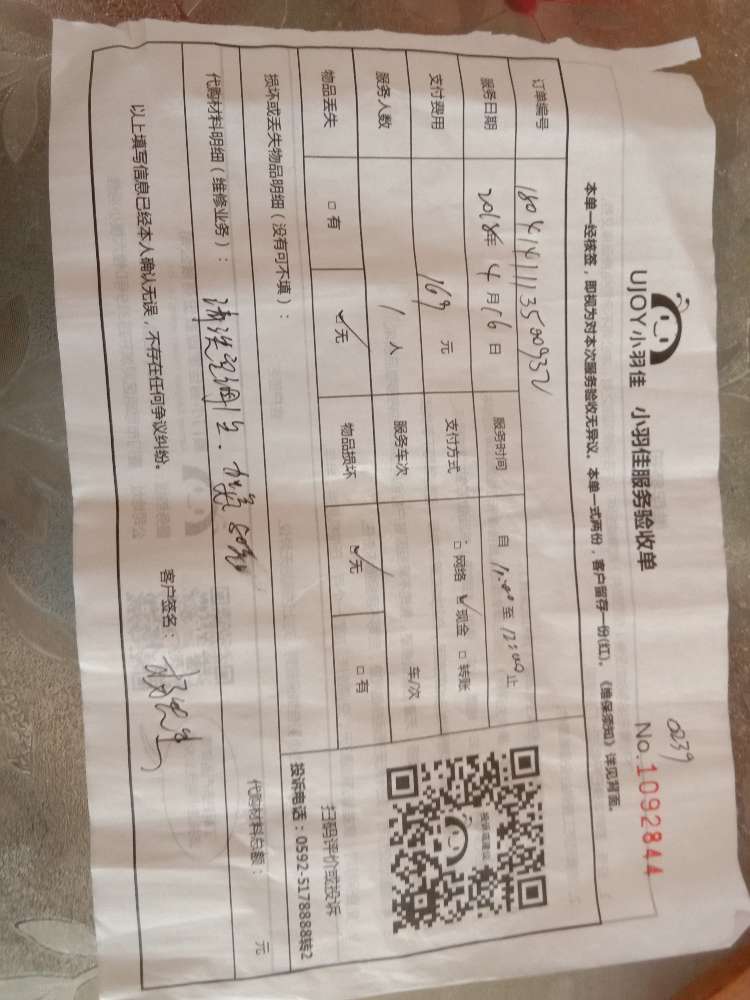 0239
UJOY小羽佳 小羽佳服务验收单 No.1092844
本单一经核签，即视为对本次服务验收无异议。本单一式两份，客户留存一份(红)。《维保须知》详见背面。
订单编号 1804141113500932
服务日期 2018年 4月16日 服务时间 自 11:00 至 12:00 止
支付费用 169 元 支付方式： □网络 ☑现金 □转账
服务人数 1 人 服务车次 车/次
物品丢失 □有 ☑无 物品损坏 ☑无 □有
损坏或丢失物品明细（没有可不填）：
扫码评价或投诉
投诉电话：0592-5178888转2
代购材料明细（维修业务）： 清洗空调 代购材料总额： 元
以上填写信息已经本人确认无误，不存在任何争议纠纷。 客户签名：